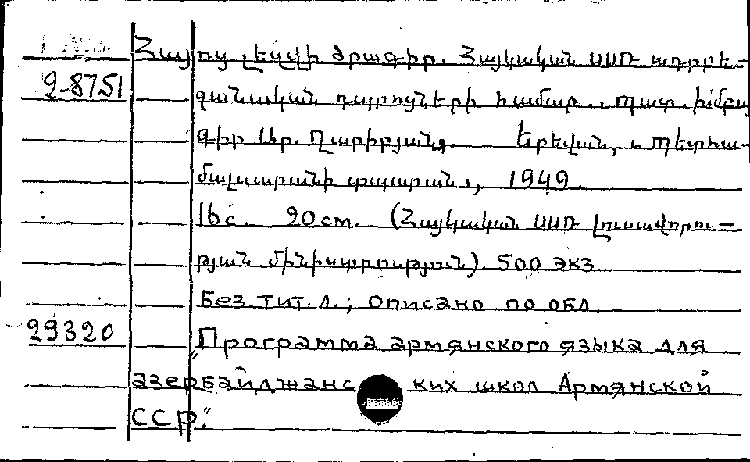 Հայոց լեզվի ծրագիր. Հայկական ՍՍՌ ադրբե-
9-8751 ջանական դպրոցների համար. պատ. խմբա
գիր Ար. Ղարիբյան. Երևան, Պետհա-
մալսարանի տպարան, 1949.
16с. 20cm. (Հայկական ՍՍՌ Լուսավորու-
թյան մինիստրություն). 500 экз
Без тит. л.; описано по обл
29320 „Программа армянского языка для
азербайджанс ких школ Армянской
ССР."